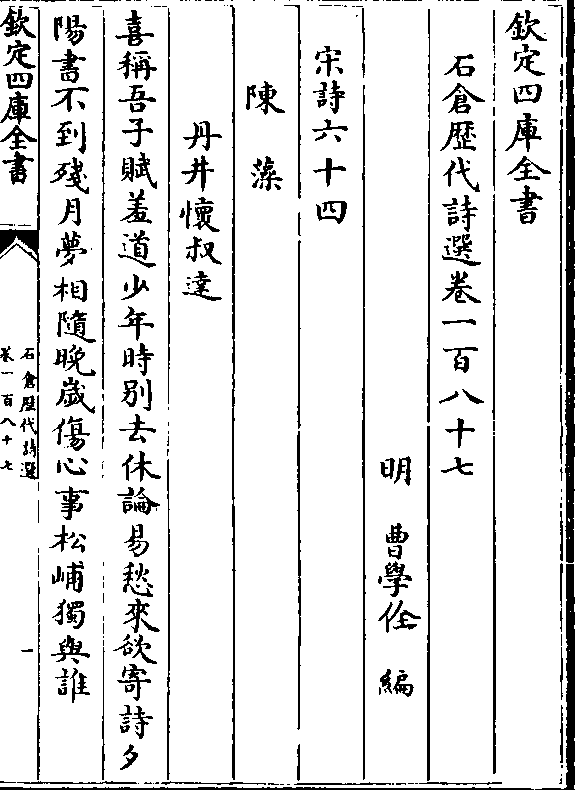 欽定四庫全書
石倉歴代詩選卷一百八十七
明 曹學佺 編
宋詩六十四
陳藻
丹井懷叔達
喜稱吾子賦羞道少年時别去休論易愁來欲寄詩夕
陽書不到殘月夢相隨晚嵗傷心事松峬獨與誰
欽定四庫全書
石倉歴代詩選
卷一百八十七
一